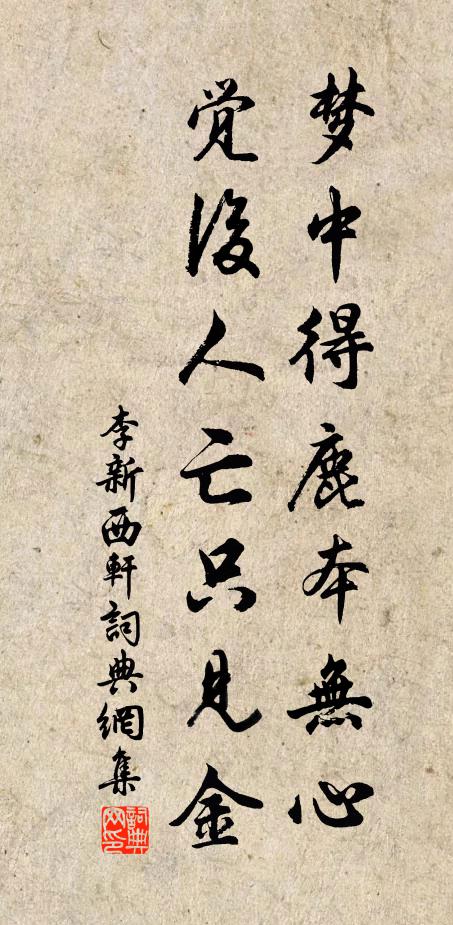 梦中得鹿本無心
覚後人亡只見金
李新西軒詞典網集
詞典網印